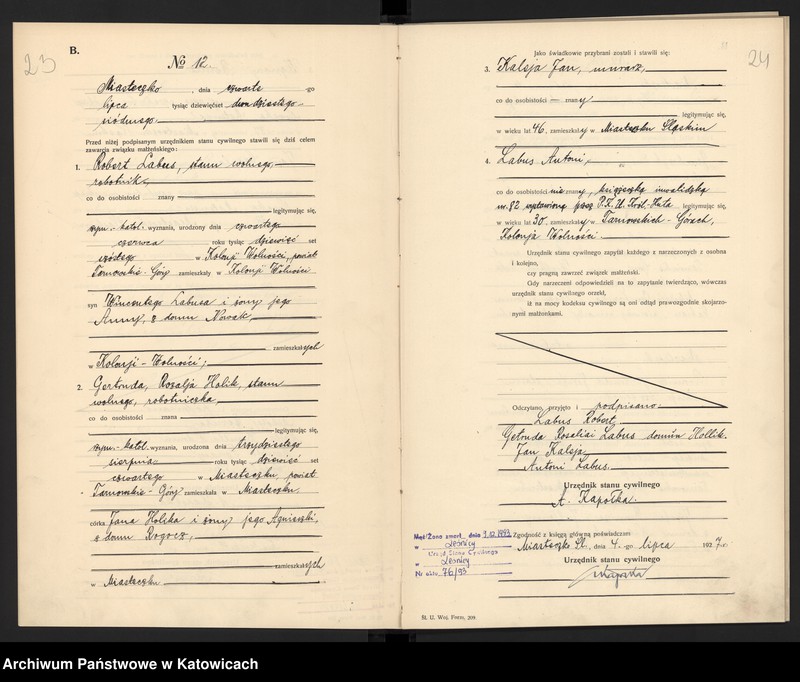 23
B.
No 12.
Miasteczko, dnia czwarte -go
lipca tysiąc dziewięćset dwudziestego
siódmego.
Przed niżej podpisanym urzędnikiem stanu cywilnego stawili się dziś celem
zawarcia związku małżeńskiego:
1. Robert Labus, stanu wolnego,
robotnik,
co do osobistości znany
legitymując się,
rzym.-katol. wyznania, urodzony dnia czwartego
czerwca roku tysiąc dziewięć set
szóstego w Kolonji Wolności, powiat
Tarnowskie-Góry zamieszkały w Kolonji Wolności
syn Wincentego Labusa i żony jego
Anny, z domu Nowak,
zamieszkałych
w Kolonji-Wolności;
2. Gertruda, Rozalja Holik, stanu
wolnego, robotniczka
co do osobistości znana
legitymując się,
rzym.-katol. wyznania, urodzona dnia trzydziestego
sierpnia roku tysiąc dziewięć set
czwartego w Miasteczku, powiat
Tarnowskie-Góry zamieszkała w Miasteczku.
córka Jana Holika i żony jego Agnieszki,
z domu Rogocz,
zamieszkałych
w Miasteczku
24
Jako świadkowie przybrani zostali i stawili się:
3. Kalsja Jan, murarz,
co do osobistości – znany
legitymując się,
w wieku lat 46, zamieszkały w Miasteczku Śląskim
4. Labus Antoni,
co do osobistości nie znany, książeczką inwalidzką
nr. 82 wystawioną przez P.K.U. Król-Huta legitymując się,
w wieku lat 30, zamieszkały w Tarnowskich-Górach,
Kolonja Wolności.
Urzędnik stanu cywilnego zapytał każdego z narzeczonych z osobna
i kolejno,
czy pragną zawrzeć związek małżeński.
Gdy narzeczeni odpowiedzieli na to zapytanie twierdząco, wówczas
urzędnik stanu cywilnego orzekł,
iż na mocy kodeksu cywilnego są oni odtąd prawozgodnie skojarzo-
nymi małżonkami.
Odczytano, przyjęto i podpisano:
Labus Robert,
Getruda Labus Hollik.
Jan Kalsja
Antoni Labus.
Urzędnik stanu cywilnego
A. Kapołka.
Mąż/Żona zmarł dnia 1993
w Leśnicy
Urząd Stanu Cywilnego
w Leśnicy
Nr aktu 76/93
Zgodność z księgą główną poświadcza:
Miasteczko Śl., dnia 4. -go lipca 1927 r.
Urzędnik stanu cywilnego
Kapołka
Śl. U. Woj. Form. 209.
Archiwum Państwowe w Katowicach